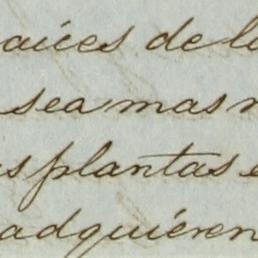 aíces de l
sea mas
s plantas e
adquiéren